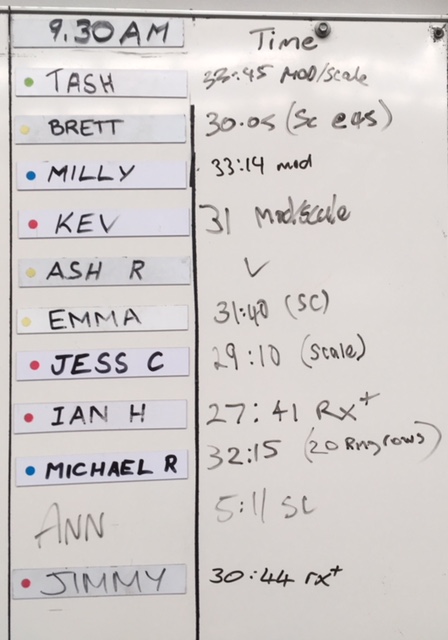 9.30 AM Time
TASH 33:45 MOD/scale
BRETT 30.05 (Sc
MILLY 33:14 mod
KEV 31 Mod/scale
ASH R ✓
EMMA 31:40 (SC)
JESS C 29:10 (scale)
IAN H 27:41 Rx+
MICHAEL R 32:15 (20 Ring rows)
ANN 5:11 SC
JIMMY 30:44 rx+